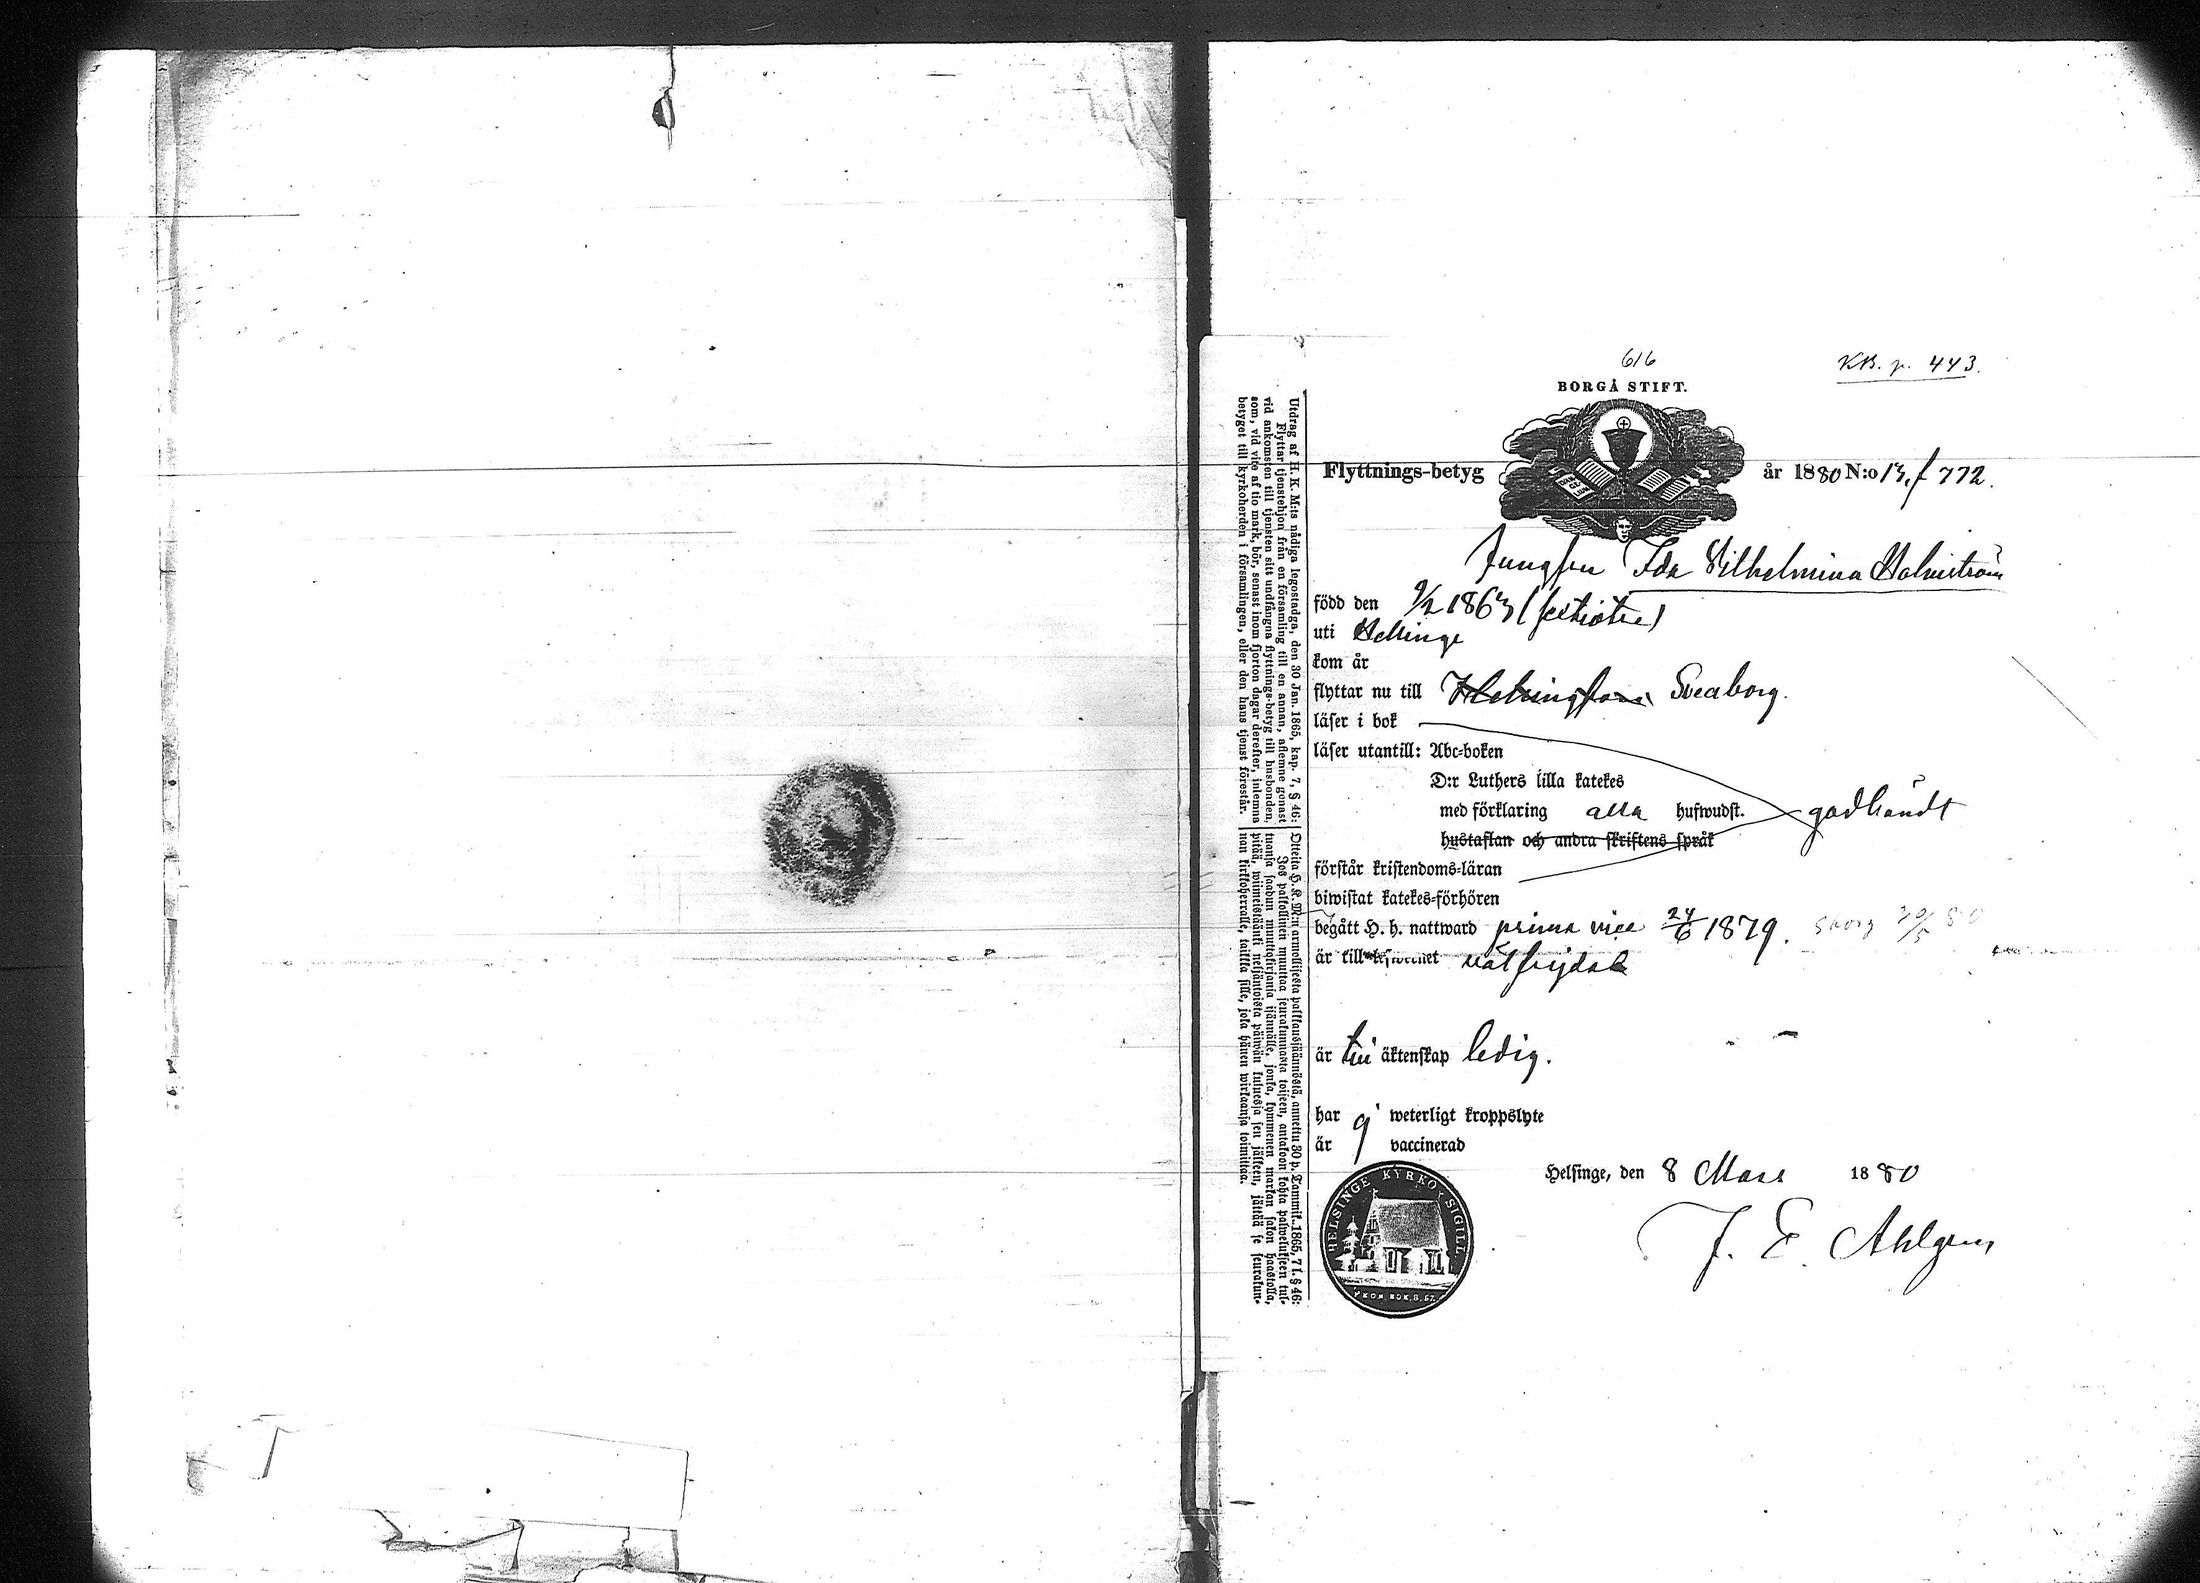 616
KB. p. 443.
BORGÅ STIFT.
Flyttnings-betyg år 1880 N:o 13, f 772.
Jungfru Ida Vilhelmina Holmström
född den 9/2 1863 (sextiotre)
uti Helsinge
kom år
flyttar nu till Helsingfors Sveaborg.
läser i bok
läser utantill: Abc-boken
D:r Luthers lilla katekes
med förklaring alla hufwudst. godkändt
hustaflan och andra skriftens språk
förstår kristendoms-läran
biwistat katekes-förhören
begått H. h. nattward prima vice 24/6 1879. Sborg 30/5 80
är till wälfrejdad
är till äktenskap ledig.
har ej weterligt kroppslyte
är vaccinerad
Helsinge, den 8 Mars 1880
J. E. Ahlgren
HELSINGE KYRKO SIGILL
Utdrag af H. K. M:ts nådiga legostadga, den 30 Jan. 1865, kap. 7, § 46:
Flyttar tjenstehjon från en församling till en annan, aflemne genast
vid ankomsten till tjensten sitt undfångna flyttnings-betyg till husbonden,
som, vid vite af tio mark, bör, senast inom fjorton dagar derefter, inlemna
betyget till kyrkoherden i församlingen, eller den hans tjenst förestår.
Otteita H. K. M:n armollisesta palkkaussäännöstä, annettu 30 p. Tammik. 1865, 7 l. § 46:
Jos palkollinen muuttaa seurakunnasta toiseen, antakoon kohta palwelukseen tul-
tuansa saadun muuttokirjansa isännälle, jonka, kymmenen markan sakon haastolla,
pitää, wiimeistäänki neljäntoista päiwän kuluessa sen jälkeen, jättää se seurakun-
nan kirkkoherralle, taikka sille, joka hänen wirkaansa toimittaa.